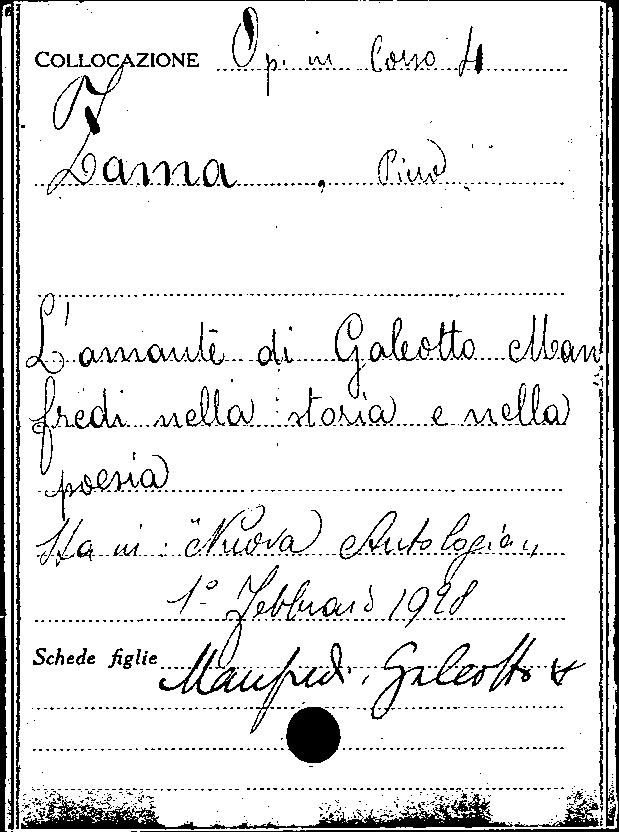 COLLOCAZIONE Op. in Corso 4
Zama, Piero
L'amante di Galeotto Man
fredi nella storia e nella
poesia
Sta in: "Nuova Antologia„
1° Febbraio 1928
Schede figlie Manfredi, Galeotto